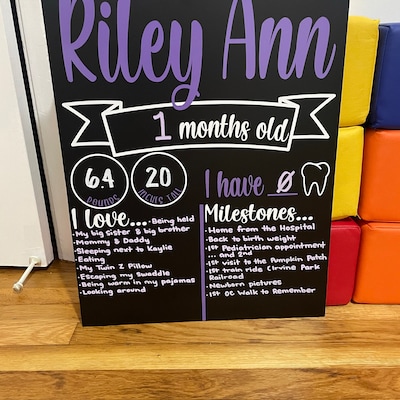 Riley Ann
1 months old
6.4
POUNDS
20
INCHES TALL
I have 0
I love... • Being held
• My big sister & big brother
• Mommy & Daddy
• Sleeping next to Kaylie
• Eating
• My Twin Z Pillow
• Escaping my Swaddle
• Being warm in my pajamas
• Looking around
Milestones...
• Home from the Hospital
• Back to birth weight
• 1st Pediatrician appointment
... and 2nd
• 1st visit to the Pumpkin Patch
• 1st train ride (Irvine Park
Railroad
• Newborn pictures
• 1st OC Walk to Remember